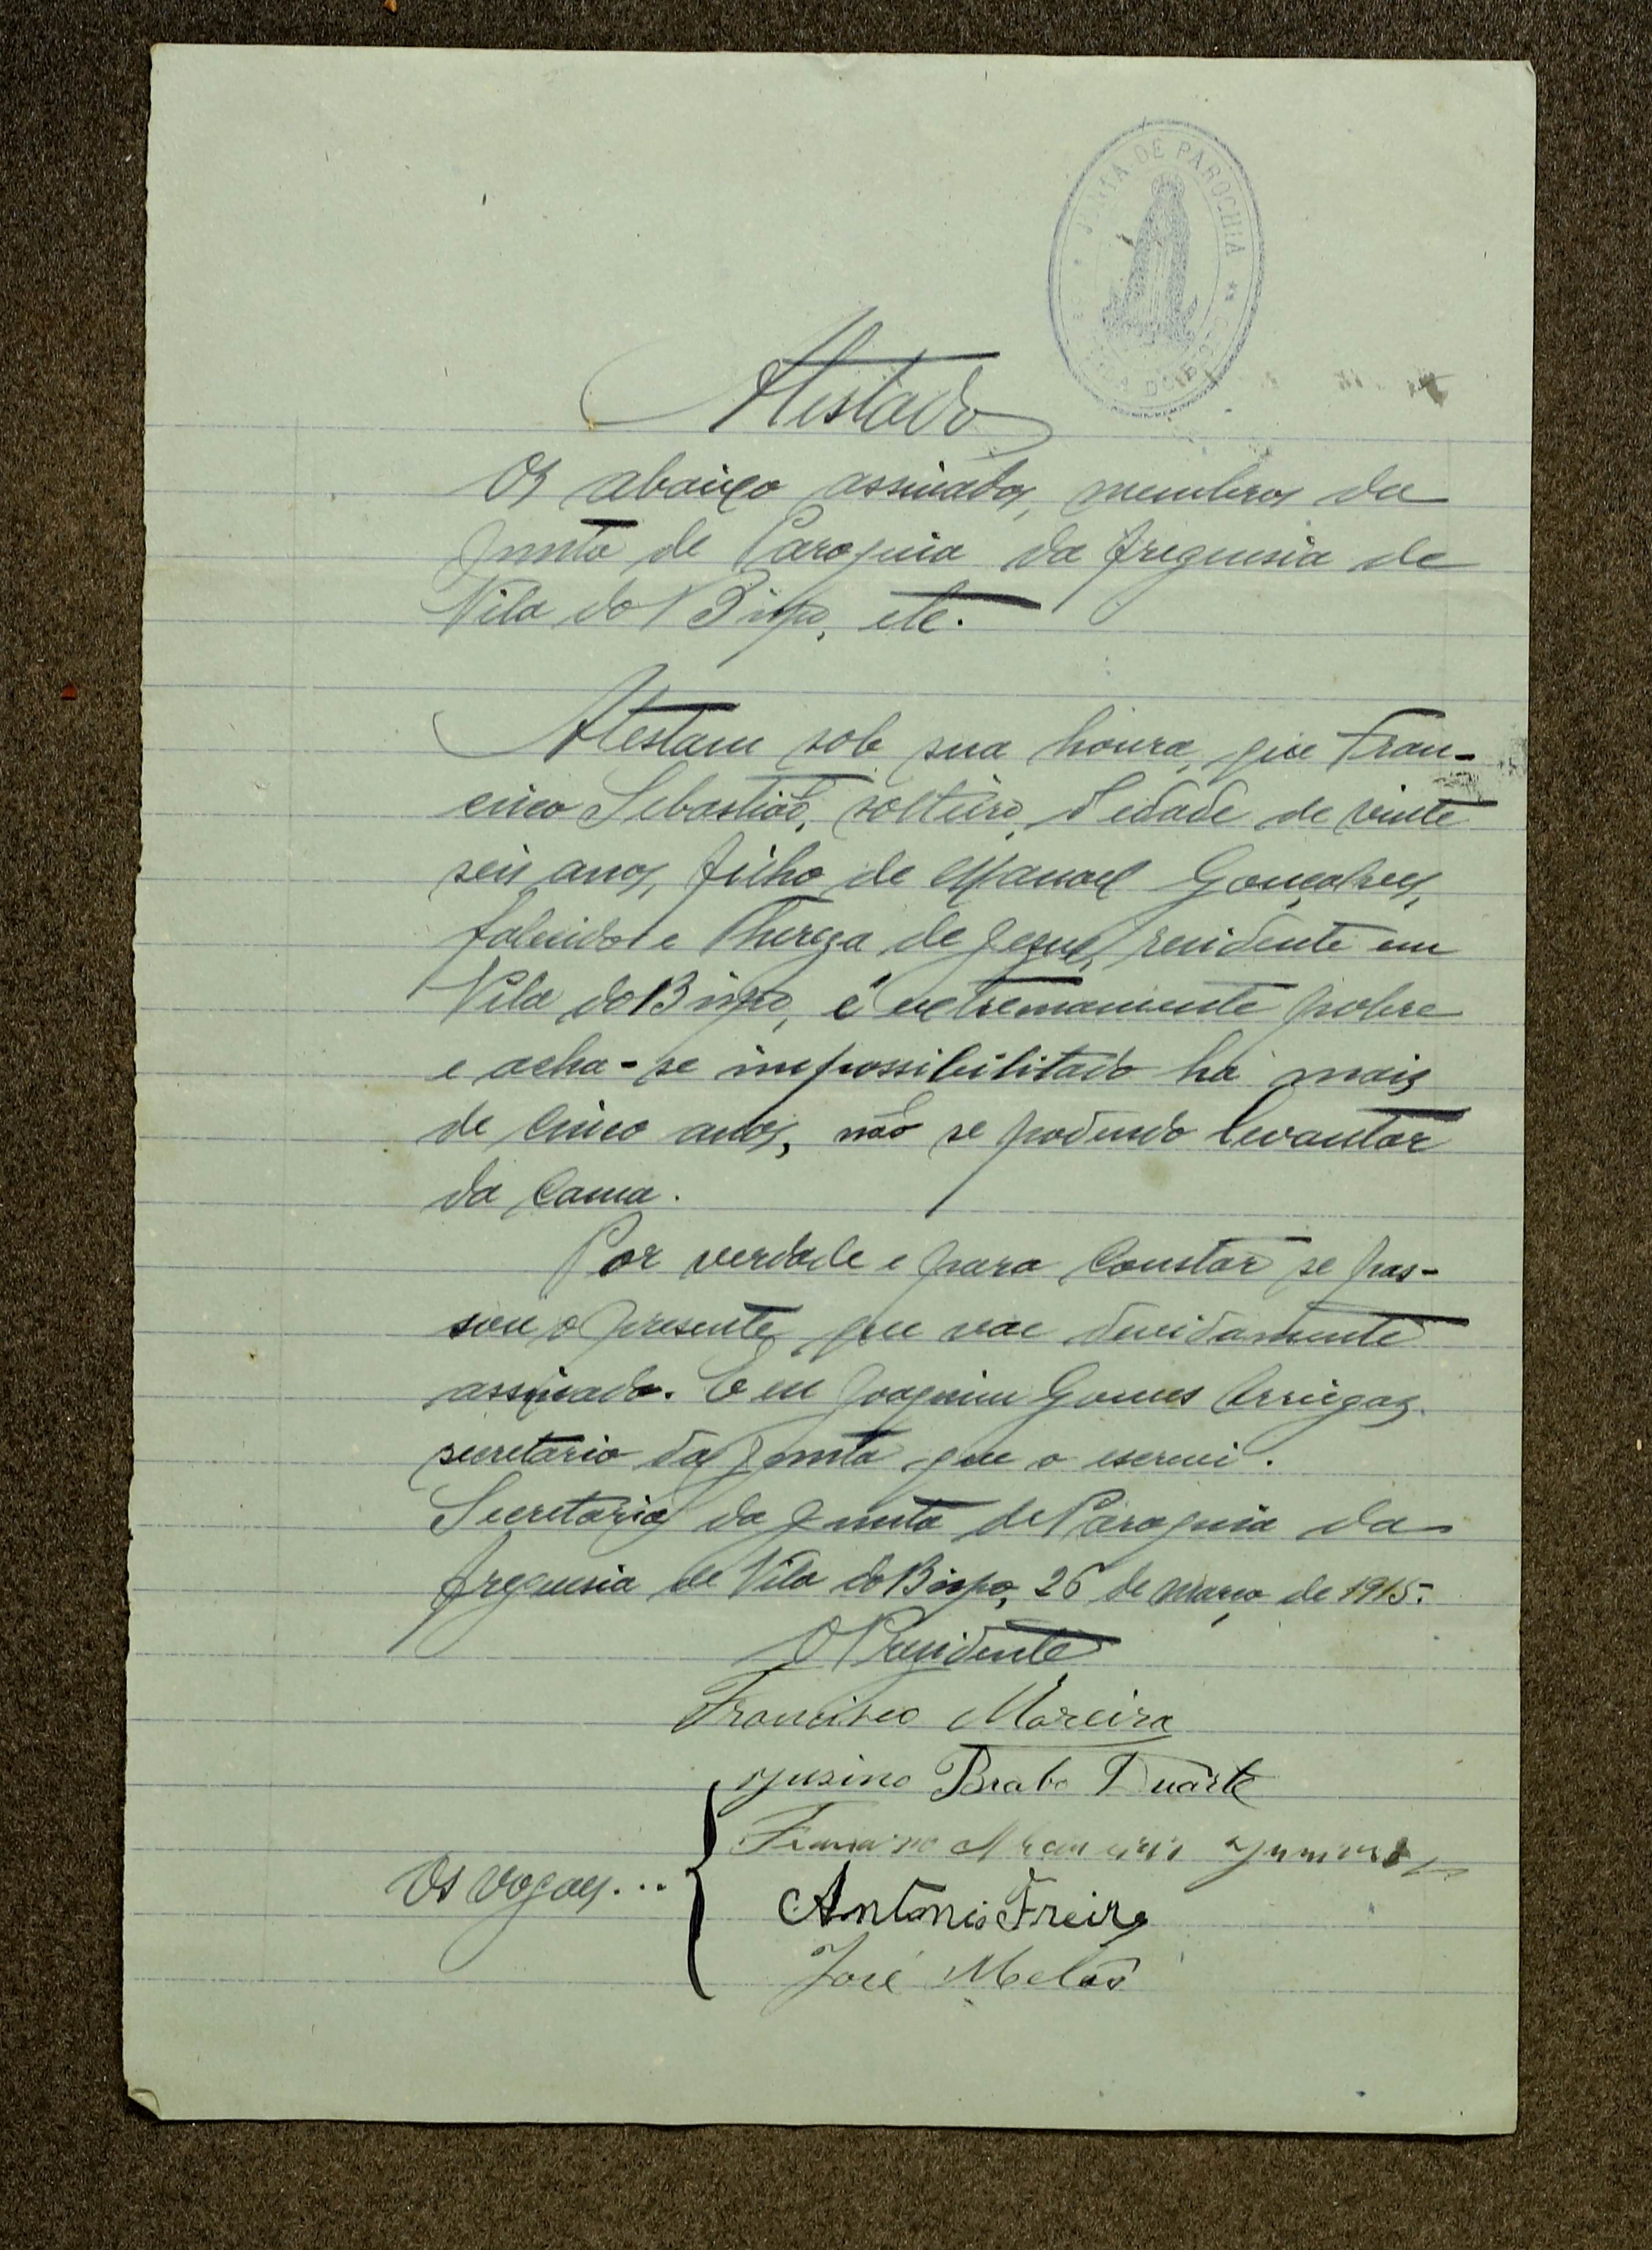 JUNTA DE PAROCHIA
VILA DO BISPO
Atestado
Os abaixo assinados, membros da
Junta de Paroquia da freguesia de
Vila do Bispo, etc.
Atestam sob sua honra, que Fran-
cisco Sebastião, solteiro, d'edade de vinte
seis anos, filho de Manoel Gonçalves,
falecido e Thereza de Jesus, residente em
Vila do Bispo, é extremamente pobre
e acha-se impossibilitado há mais
de cinco anos, não se podendo levantar
da cama.
Por verdade e para constar se pas-
sou o presente, que vae devidamente
assinado. E eu Joaquim Gomes Arriegas
secretario da Junta que o escrevi.
Secretaria da Junta de Paroquia da
freguesia de Vila do Bispo, 26 de março de 1915.
O Presidente
Francisco Moreira
Brabo Duarte
Antonio Freire
Os vogaes...
José Melão